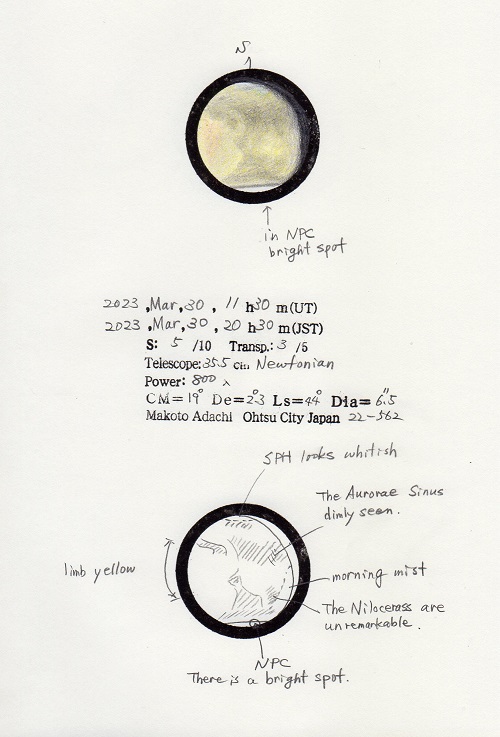 S
in NPC
bright spot
2023 ,Mar,30 , 11 h 30 m(UT)
2023 ,Mar,30 , 20 h 30 m(JST)
S: 5 /10 Transp.: 3 /5
Telescope: 35.5 cm Newtonian
Power: 800 x
CM= 19° De= 2.°3 Ls= 44° Dia= 6.″5
Makoto Adachi Ohtsu City Japan 22-562
SPH looks whitish
The Aurorae Sinus
dimly seen.
limb yellow
morning mist
The Nilocerass are
unremarkable.
NPC
There is a bright spot.